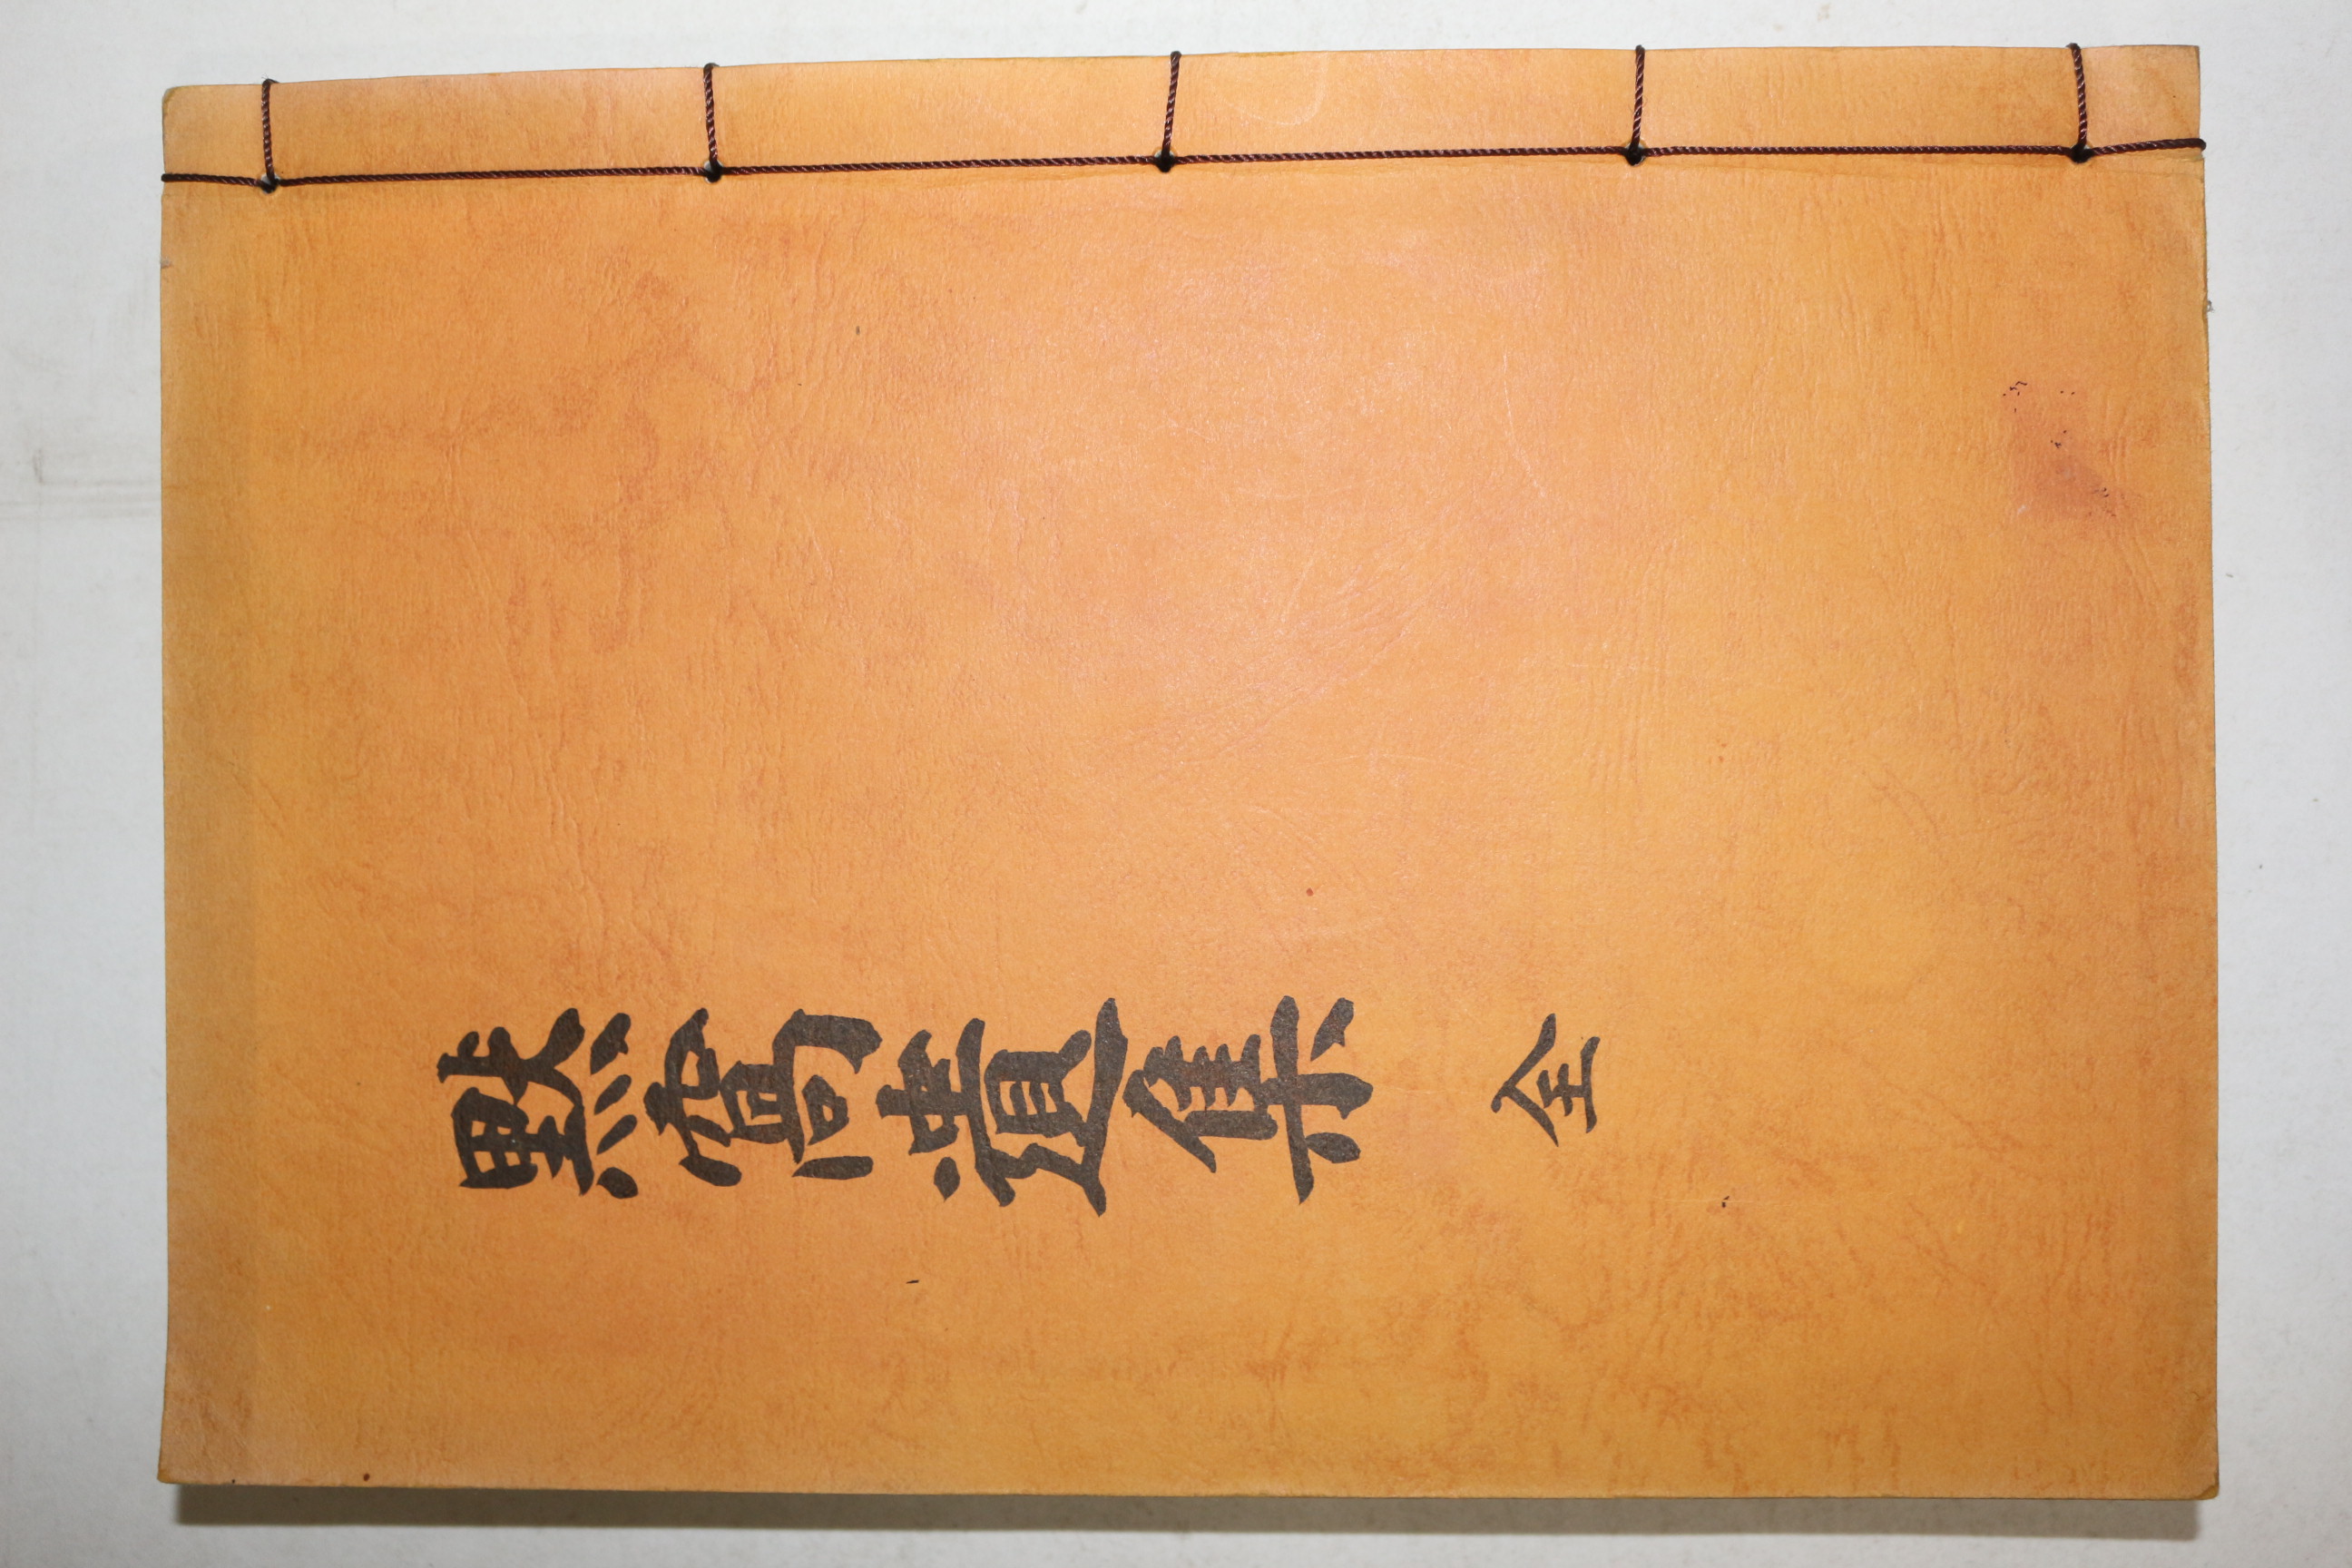 默窩遺集 全